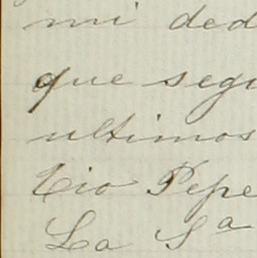 mi ded
que segu
ultimos
tio Pepe
La Sª